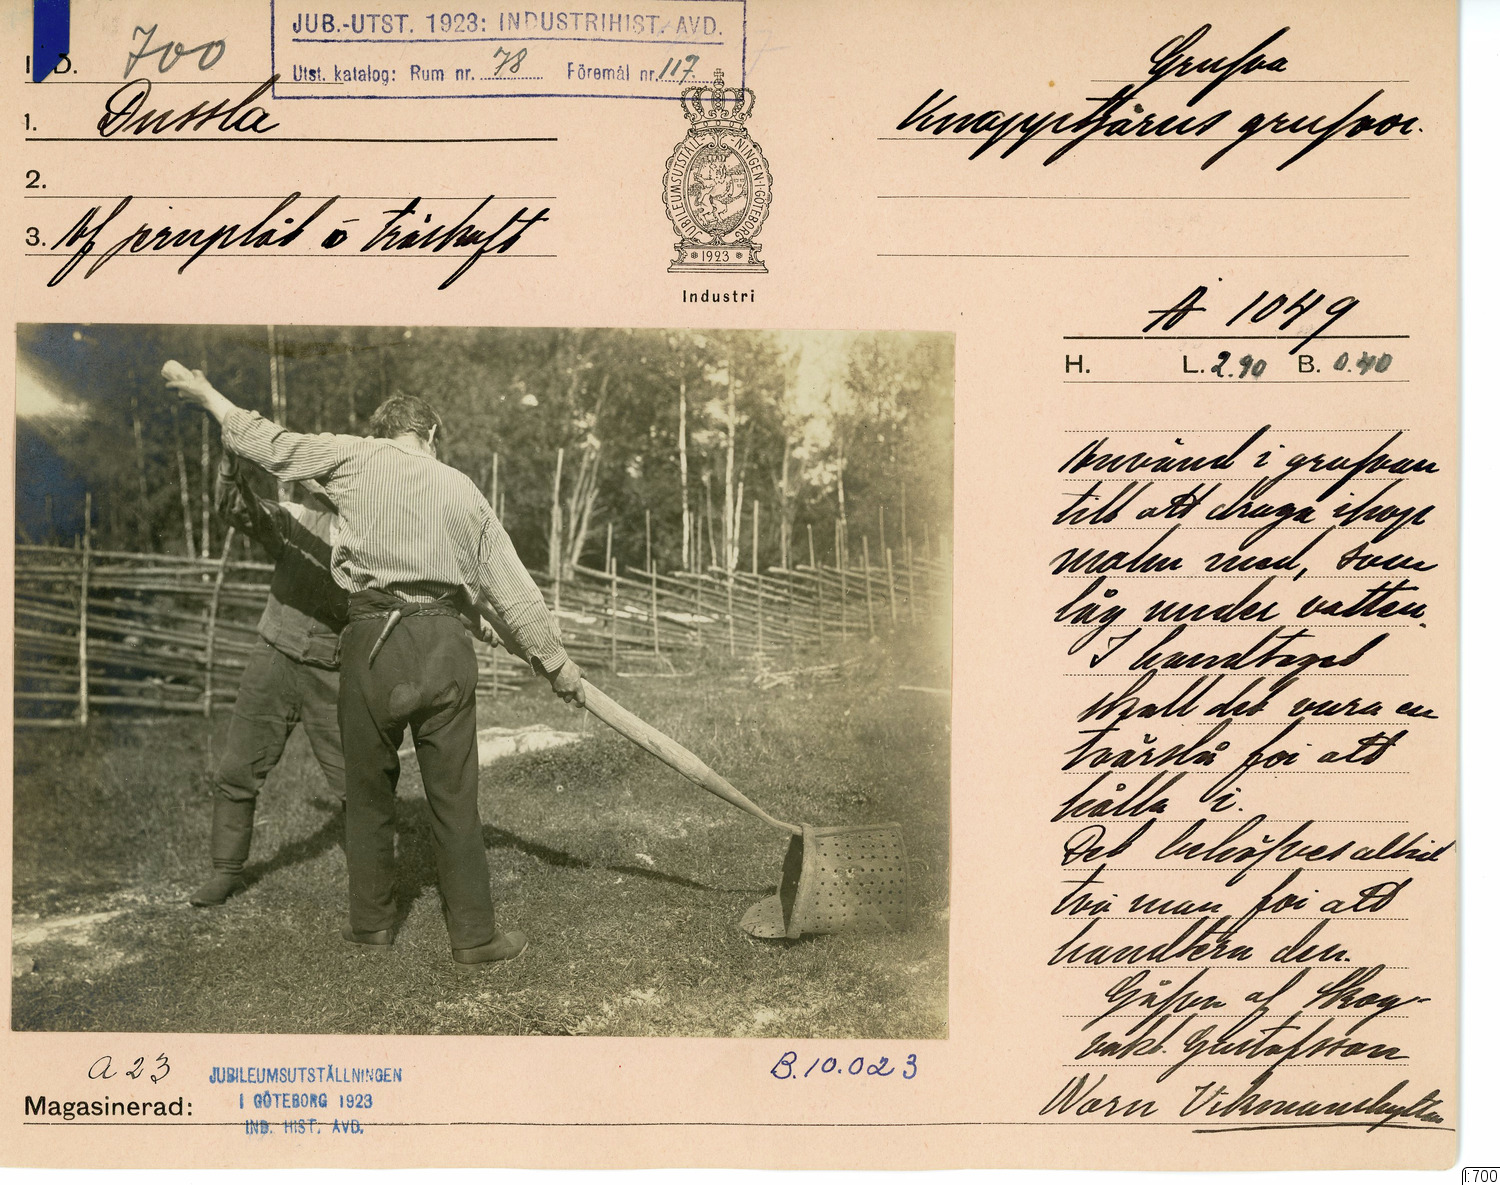 JUB.-UTST. 1923: INDUSTRIHIST. AVD.
Utst. katalog: Rum nr. 78 Föremål nr. 117
I D. 700
1. Dussla
2.
3. Af jernplåt o träskaft
JUBILEUMSUTSTÄLLNINGEN I GÖTEBORG
1923
Industri
Grufva
Knapptjärns grufvor.
A 1049
H. L. 2.90 B. 0.40
Använd i grufvan
till att draga ihop
malm med, som
låg under vatten.
I handtaget
skall det vara en
tvärslå för att
hålla i.
Det behöfves alltid
två man för att
handtera den.
Gåfva af Skog-
vakt. Gustafsson
Norn Vikmanshyttan
A 23
B.10.023
JUBILEUMSUTSTÄLLNINGEN
I GÖTEBORG 1923
IND. HIST. AVD.
Magasinerad:
I:700